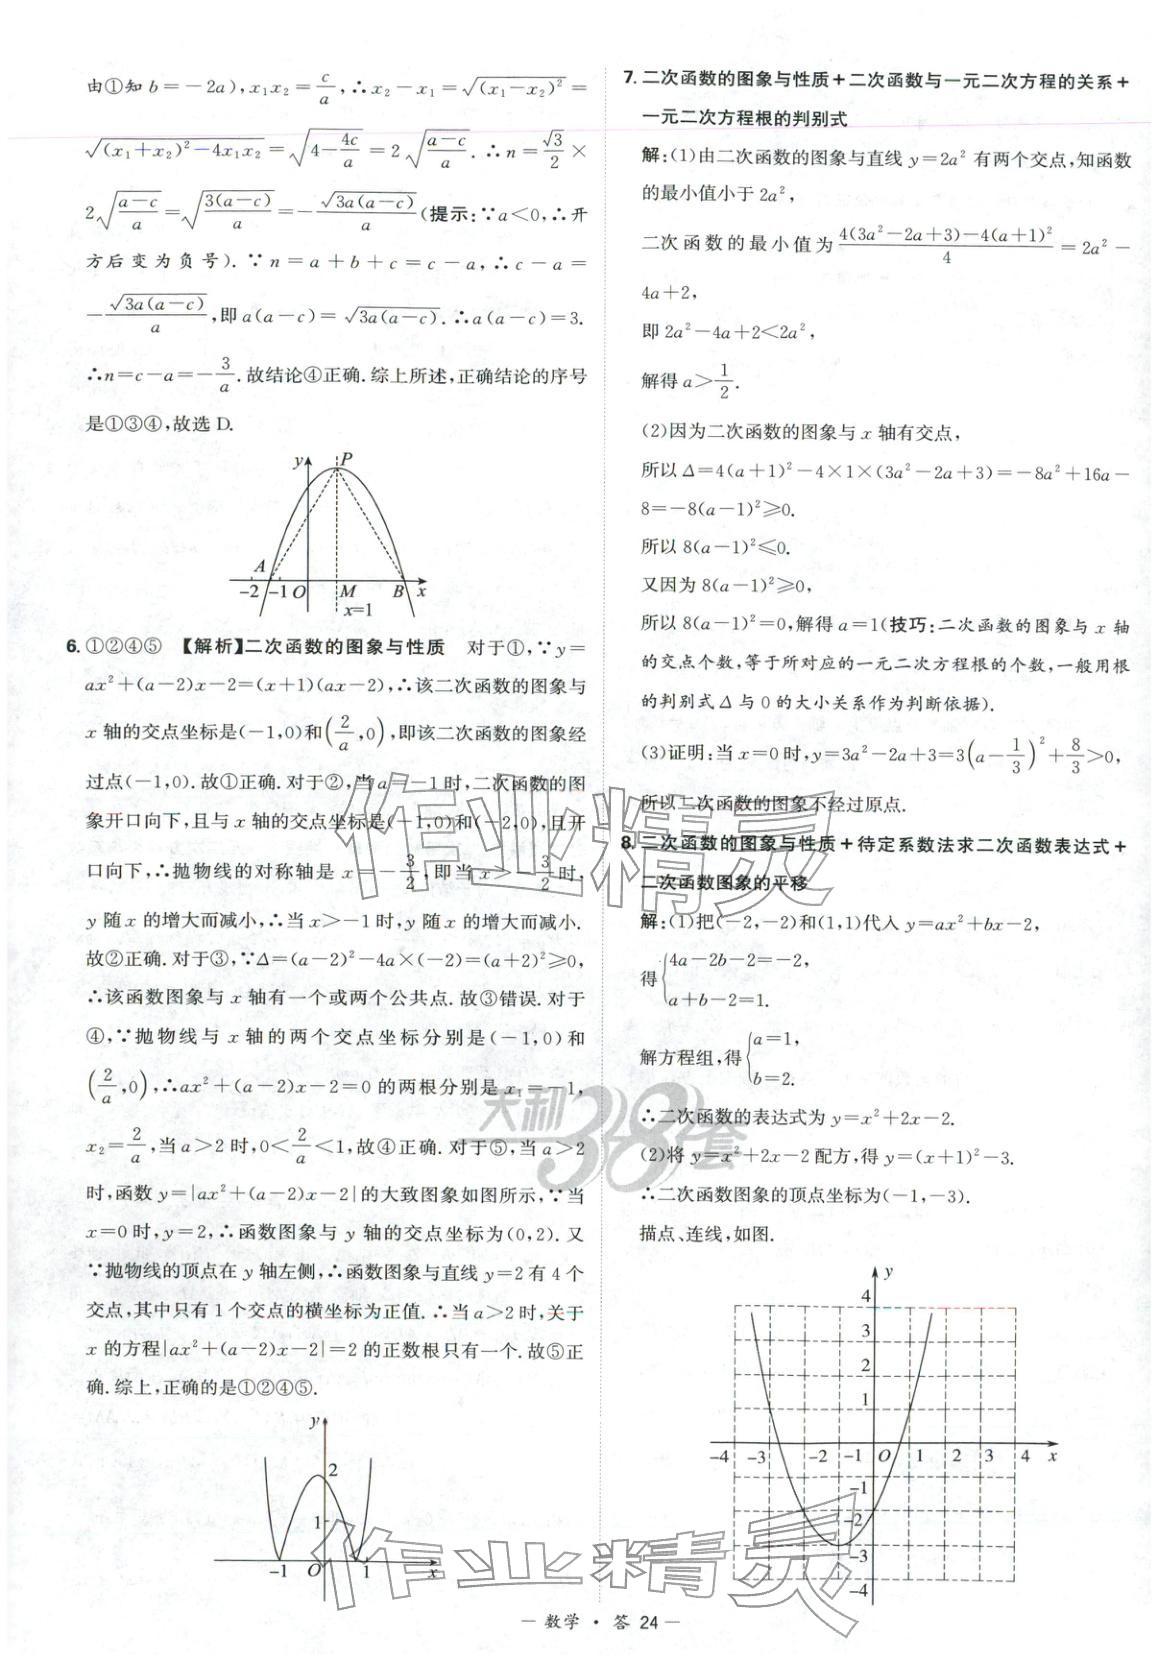 由①知b=-2a),x₁x₂=c/a,∴x₂-x₁=√((x₁-x₂)²)=
√((x₁+x₂)²-4x₁x₂)=√(4-4c/a)=2√((a-c)/a).∴n=√3/2×
2√((a-c)/a)=√(3(a-c)/a)=-√(3a(a-c))/a(提示:∵a<0,∴开
方后变为负号).∵n=a+b+c=c-a,∴c-a=
-√(3a(a-c))/a,即a(a-c)=√(3a(a-c)).∴a(a-c)=3.
∴n=c-a=-3/a.故结论④正确.综上所述,正确结论的序号
是①③④,故选D.
y P
A
-2 -1 O M B x
x=1
6.①②④⑤ 【解析】二次函数的图象与性质 对于①,∵y=
ax²+(a-2)x-2=(x+1)(ax-2),∴该二次函数的图象与
x轴的交点坐标是(-1,0)和(2/a,0),即该二次函数的图象经
过点(-1,0).故①正确.对于②,当a=-1时,二次函数的图
象开口向下,且与x轴的交点坐标是(-1,0)和(-2,0),且开
口向下,∴抛物线的对称轴是x=-3/2,即当x>-3/2时,
y随x的增大而减小,∴当x>-1时,y随x的增大而减小.
故②正确.对于③,∵Δ=(a-2)²-4a×(-2)=(a+2)²≥0,
∴该函数图象与x轴有一个或两个公共点.故③错误.对于
④,∵抛物线与x轴的两个交点坐标分别是(-1,0)和
(2/a,0),∴ax²+(a-2)x-2=0的两根分别是x₁=-1,
x₂=2/a,当a>2时,0<2/a<1,故④正确.对于⑤,当a>2
时,函数y=|ax²+(a-2)x-2|的大致图象如图所示,∵当
x=0时,y=2,∴函数图象与y轴的交点坐标为(0,2).又
∵抛物线的顶点在y轴左侧,∴函数图象与直线y=2有4个
交点,其中只有1个交点的横坐标为正值.∴当a>2时,关于
x的方程|ax²+(a-2)x-2|=2的正数根只有一个.故⑤正
确.综上,正确的是①②④⑤.
y
2
1
-1 O 1 x
7.二次函数的图象与性质+二次函数与一元二次方程的关系+
一元二次方程根的判别式
解:(1)由二次函数的图象与直线y=2a²有两个交点,知函数
的最小值小于2a²,
二次函数的最小值为(4(3a²-2a+3)-4(a+1)²)/4=2a²-
4a+2,
即2a²-4a+2<2a²,
解得a>1/2.
(2)因为二次函数的图象与x轴有交点,
所以Δ=4(a+1)²-4×1×(3a²-2a+3)=-8a²+16a-
8=-8(a-1)²≥0.
所以8(a-1)²≤0.
又因为8(a-1)²≥0,
所以8(a-1)²=0,解得a=1(技巧:二次函数的图象与x轴
的交点个数,等于所对应的一元二次方程根的个数,一般用根
的判别式Δ与0的大小关系作为判断依据).
(3)证明:当x=0时,y=3a²-2a+3=3(a-1/3)²+8/3>0,
所以二次函数的图象不经过原点.
8.二次函数的图象与性质+待定系数法求二次函数表达式+
二次函数图象的平移
解:(1)把(-2,-2)和(1,1)代入y=ax²+bx-2,
得{4a-2b-2=-2,
a+b-2=1.
解方程组,得{a=1,
b=2.
∴二次函数的表达式为y=x²+2x-2.
(2)将y=x²+2x-2配方,得y=(x+1)²-3.
∴二次函数图象的顶点坐标为(-1,-3).
描点、连线,如图.
y
4
3
2
1
-4 -3 -2 -1 O 1 2 3 4 x
-1
-2
-3
-4
作业精灵
天利38套
作业精灵
— 数学·答 24 —